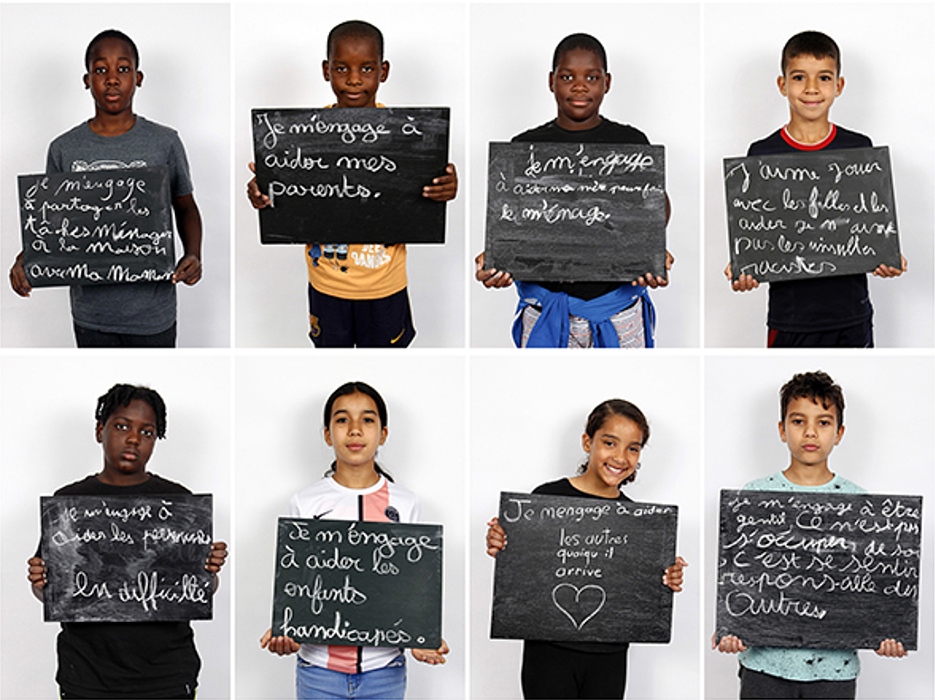 Je m'engage
à partager les
tâches ménagères
à la maison
avec Ma Maman
Je m'engage à
aider mes
parents.
je m'engage
à aider ma mère pour fair
le ménage.
J'aime jouer
avec les filles et les
aider je n'aime
pas les insultes
racistes
je m'engage à
aider les personnes
en difficulté
Je m'éngage
à aider les
enfants
handicapés.
Je mengage à aider
les autres
quoiqu'il
arrive
je m'engage à être
gentil Ce n'est pas
s'occuper de soi
c'est se sentir
respons-able des
Autres.